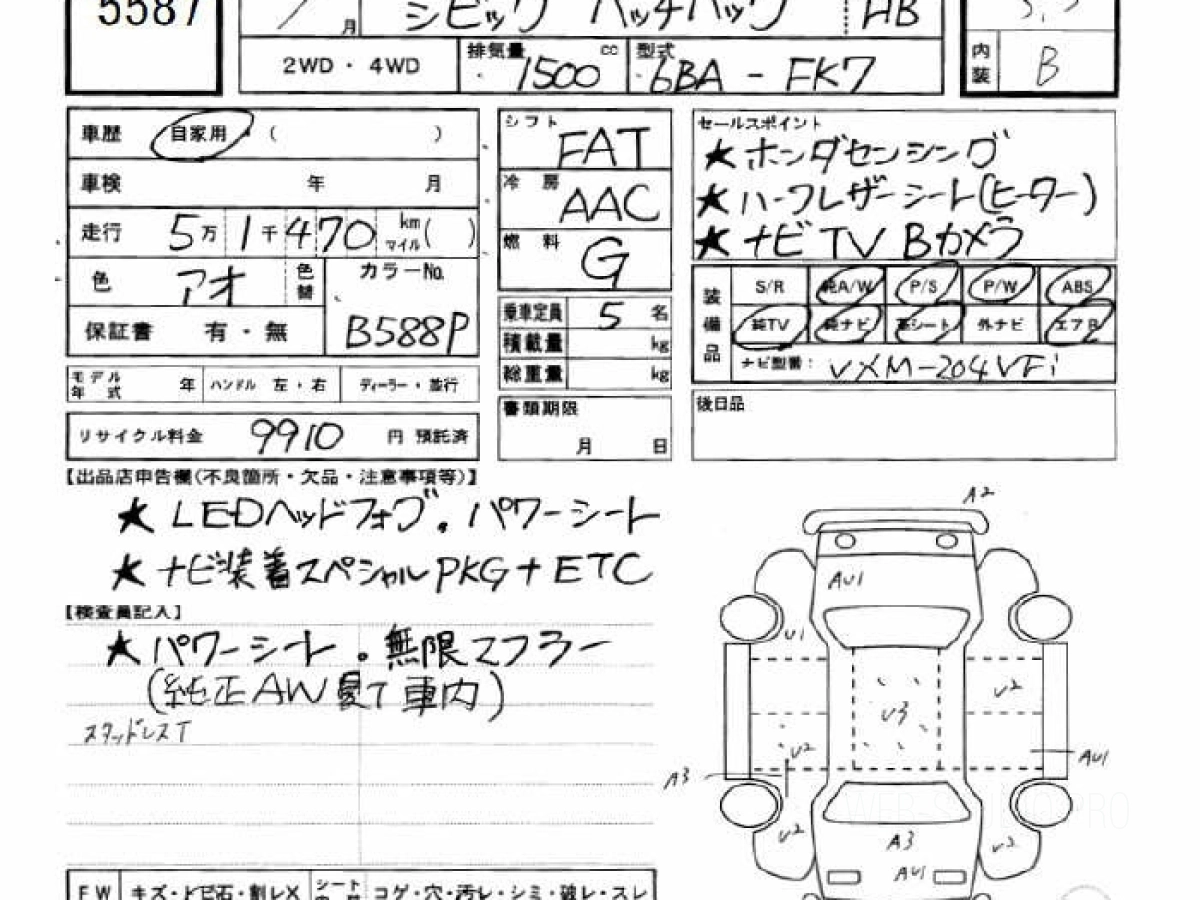 5587
月
シビック ハッチバック HB
2WD・4WD
排気量 1500 cc
型式 6BA - FK7
内装 B
車歴 自家用・( )
車検 年 月
走行 5万1千470 km マイル( )
色 アオ 色替
カラーNo. B588P
保証書 有・無
モデル年式 年 ハンドル 左・右 ディーラー・並行
リサイクル料金 9910 円 預託済
シフト FAT
冷房 AAC
燃料 G
乗車定員 5 名
積載量 kg
総重量 kg
書類期限
月 日
セールスポイント
★ホンダセンシング
★ハーフレザーシート(ヒーター)
★ナビTV Bカメラ
装備品
S/R 純A/W P/S P/W ABS
純TV 純ナビ 革シート 外ナビ エアB
ナビ型番: VXM-204VFi
後日品
【出品店申告欄(不良箇所・欠品・注意事項等)】
★ LEDヘッドフォグ。パワーシート
★ ナビ装着スペシャルPKG+ETC
【検査員記入】
★パワーシート。無限マフラー
(純正AW夏T車内)
スタッドレスT
A2
AU1
U1
U2
U3
U2
AU1
A3
U2
U2
A3
AU1
FW キズ・トビ石・割レX シート コゲ・穴・汚レ・シミ・破レ・スレ